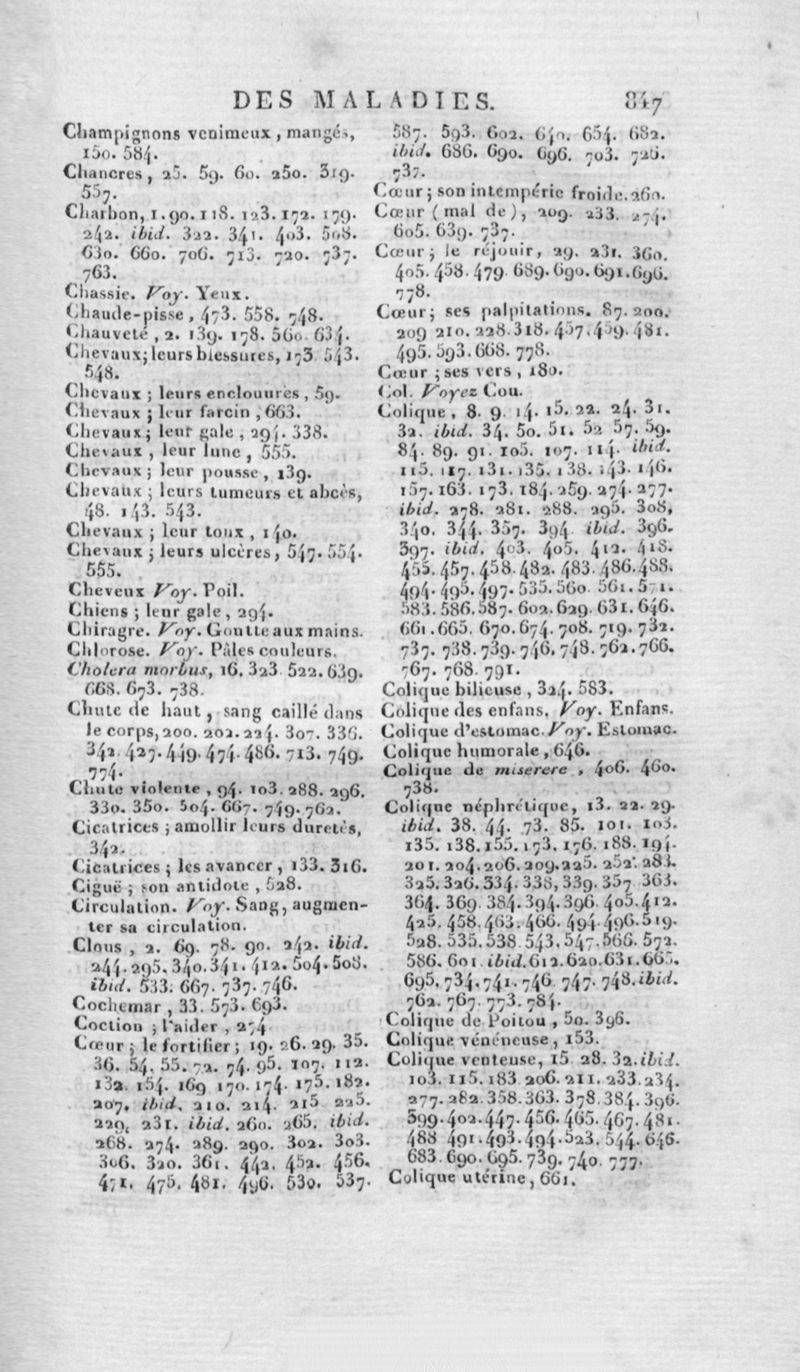 DES MALADIES. 847
Champignons venimeux, mangés,
150. 584.
Chancres, 25. 59. 60. 250. 319.
557.
Charbon, 1. 90. 118. 123. 172. 179.
242. ibid. 322. 341. 403. 508.
630. 660. 706. 713. 720. 737.
763.
Chassie. Voy. Yeux.
Chaude-pisse, 473. 558. 748.
Chauveté, 2. 139. 178. 560. 634.
Chevaux; leurs blessures, 173. 543.
548.
Chevaux; leurs enclouures, 59.
Chevaux; leur farcin, 663.
Chevaux; leur gale, 294. 338.
Chevaux, leur lune, 555.
Chevaux; leur pousse, 139.
Chevaux; leurs tumeurs et abcès,
48. 143. 543.
Chevaux; leur toux, 140.
Chevaux; leurs ulcères, 547. 554.
555.
Cheveux Voy. Poil.
Chiens; leur gale, 294.
Chiragre. Voy. Goutte aux mains.
Chlorose. Voy. Pâles couleurs.
Cholera morbus, 16. 323 522. 639.
668. 673. 738.
Chute de haut, sang caillé dans
le corps, 200. 202. 224. 307. 336.
342. 427. 449. 474. 486. 713. 749.
774.
Chute violente, 94. 103. 288. 296.
330. 350. 504. 667. 749. 762.
Cicatrices; amollir leurs duretés,
342.
Cicatrices; les avancer, 133. 316.
Ciguë; son antidote, 528.
Circulation. Voy. Sang, augmen-
ter sa circulation.
Clous, 2. 69. 78. 90. 242. ibid.
244. 295. 340. 341. 412. 504. 508.
ibid. 533. 667. 737. 746.
Cochemar, 33. 573. 693.
Coction; l'aider, 274
Cœur; le fortifier; 19. 26. 29. 35.
36. 54. 55. 72. 74. 95. 107. 112.
132. 154. 169 170. 174. 175. 182.
207. ibid. 210. 214. 215 225.
229. 231. ibid. 260. 265. ibid.
268. 274. 289. 290. 302. 303.
306. 320. 361. 442. 452. 456.
471. 475. 481. 496. 530. 537.
587. 593. 602. 640. 654. 682.
ibid. 686. 690. 696. 703. 726.
737.
Cœur; son intempérie froide. 260.
Cœur (mal de), 209. 233. 274.
605. 639. 737.
Cœur; le réjouir, 29. 231. 360.
405. 458. 479. 689. 690. 691. 696.
778.
Cœur; ses palpitations. 87. 200.
209 210. 228. 318. 457. 459. 481.
495. 593. 668. 778.
Cœur; ses vers, 180.
Col. Voyez Cou.
Colique, 8. 9. 14. 15. 22. 24. 31.
32. ibid. 34. 50. 51. 52 57. 59.
84. 89. 91. 105. 107. 114. ibid.
115. 117. 131. 135. 138. 143. 146.
157. 163. 173. 184. 259. 274. 277.
ibid. 278. 281. 288. 295. 308,
340. 344. 357. 394 ibid. 396.
397. ibid. 403. 405. 412. 418.
455. 457. 458. 482. 483. 486. 488.
494. 495. 497. 535. 560. 561. 571.
583. 586. 587. 602. 629. 631. 646.
661. 665. 670. 674. 708. 719. 732.
737. 738. 739. 746. 748. 762. 766.
767. 768. 791.
Colique bilieuse, 324. 583.
Colique des enfans, Voy. Enfans.
Colique d'estomac. Voy. Estomac.
Colique humorale, 646.
Colique de miserere, 406. 460.
738.
Colique néphrétique, 13. 22. 29.
ibid. 38. 44. 73. 85. 101. 103.
135. 138. 155. 173. 176. 188. 194.
201. 204. 206. 209. 225. 252. 283.
325. 326. 334. 338, 339. 357 363.
364. 369. 384. 394. 396. 405. 412.
425. 458. 463. 466. 494. 496. 519.
528. 535. 538. 543. 547. 566. 572.
586. 601. ibid. 612. 620. 631. 665.
695. 734. 741. 746. 747. 748. ibid.
762. 767. 773. 784.
Colique de Poitou, 50. 396.
Colique vénéneuse, 153.
Colique venteuse, 15 28. 32. ibid.
103. 115. 183. 206. 211. 233. 234.
277. 282. 358. 363. 378. 384. 396.
399. 402. 447. 456. 465. 467. 481.
488 491. 493. 494. 523. 544. 646.
683. 690. 695. 739. 740. 777.
Colique utérine, 661.